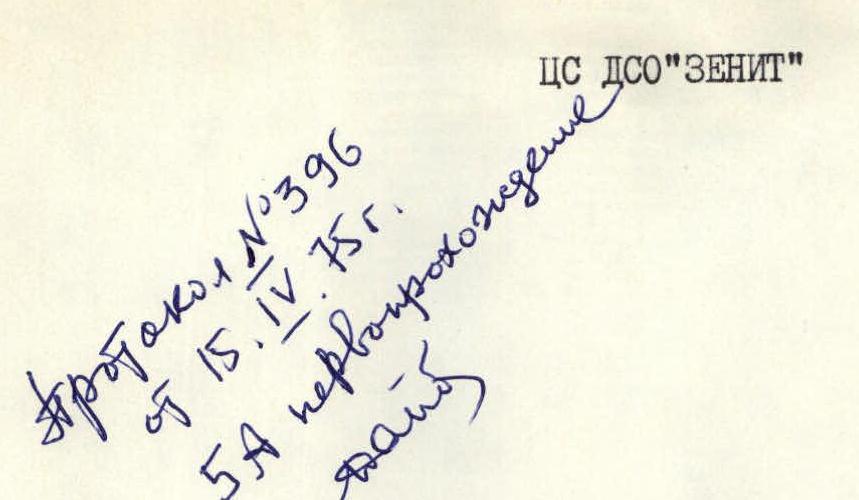 ЦС ДСО"ЗЕНИТ"
Протокол №396
от 15.IV.75г.
5А первопрохождение